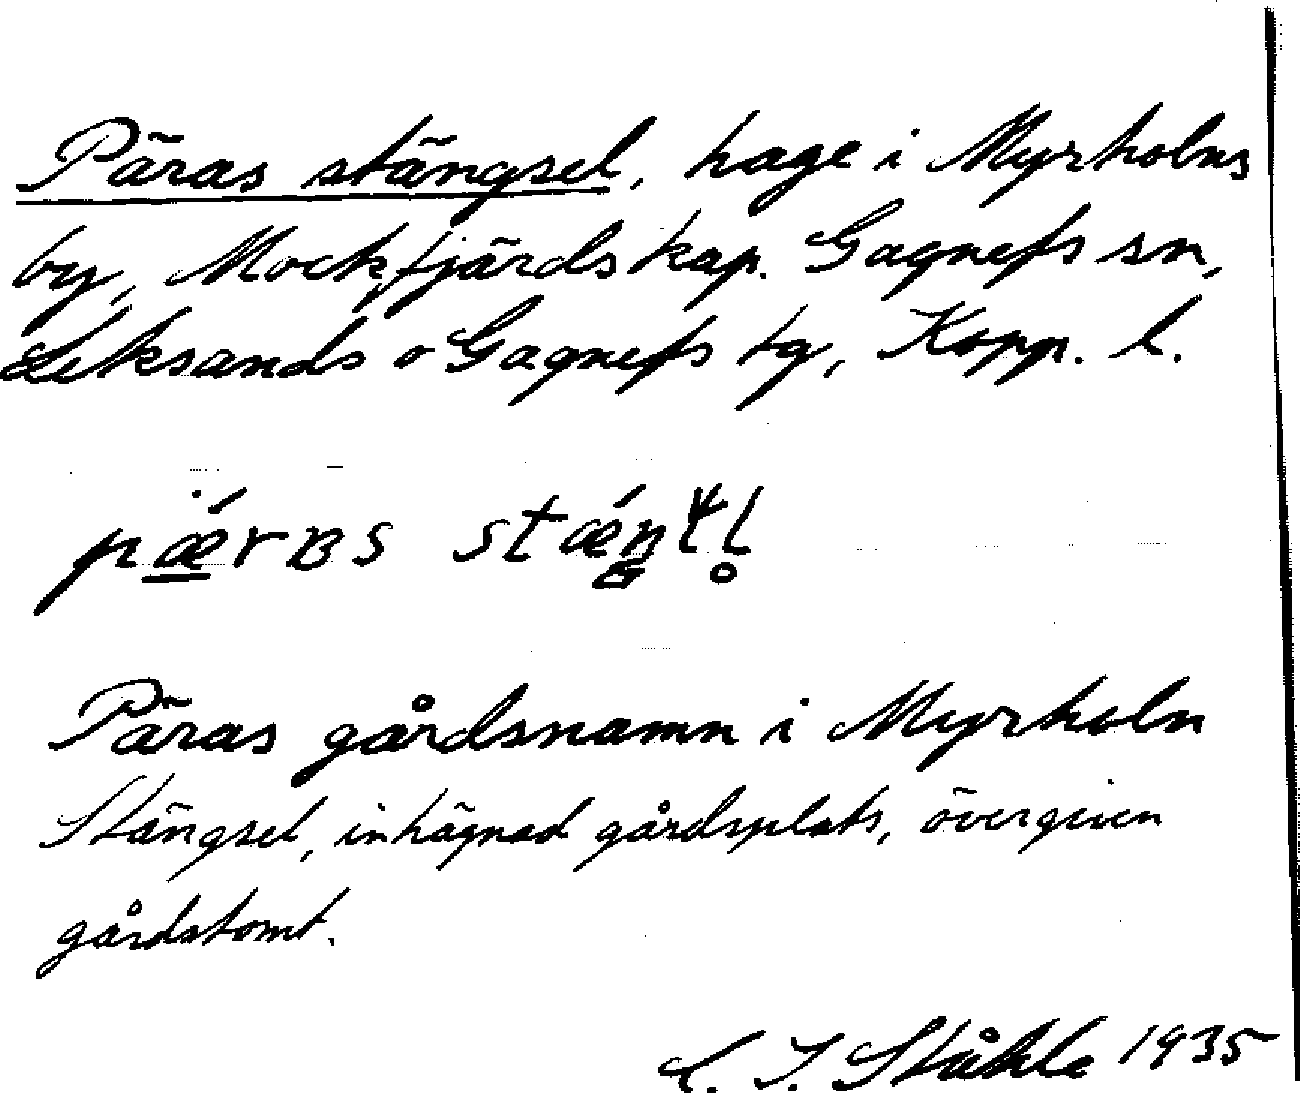 Päras stängsel, hage i Myrholns
by, Mockfjärds kap. Gagnefs sn,
Leksands o Gagnefs tg, Kopp. l.
Päras gårdsnamn i Myrholn
Stängsel, inhägnad gårdsplats, övergiven
gårdstomt.
C. I. Ståhle 1935